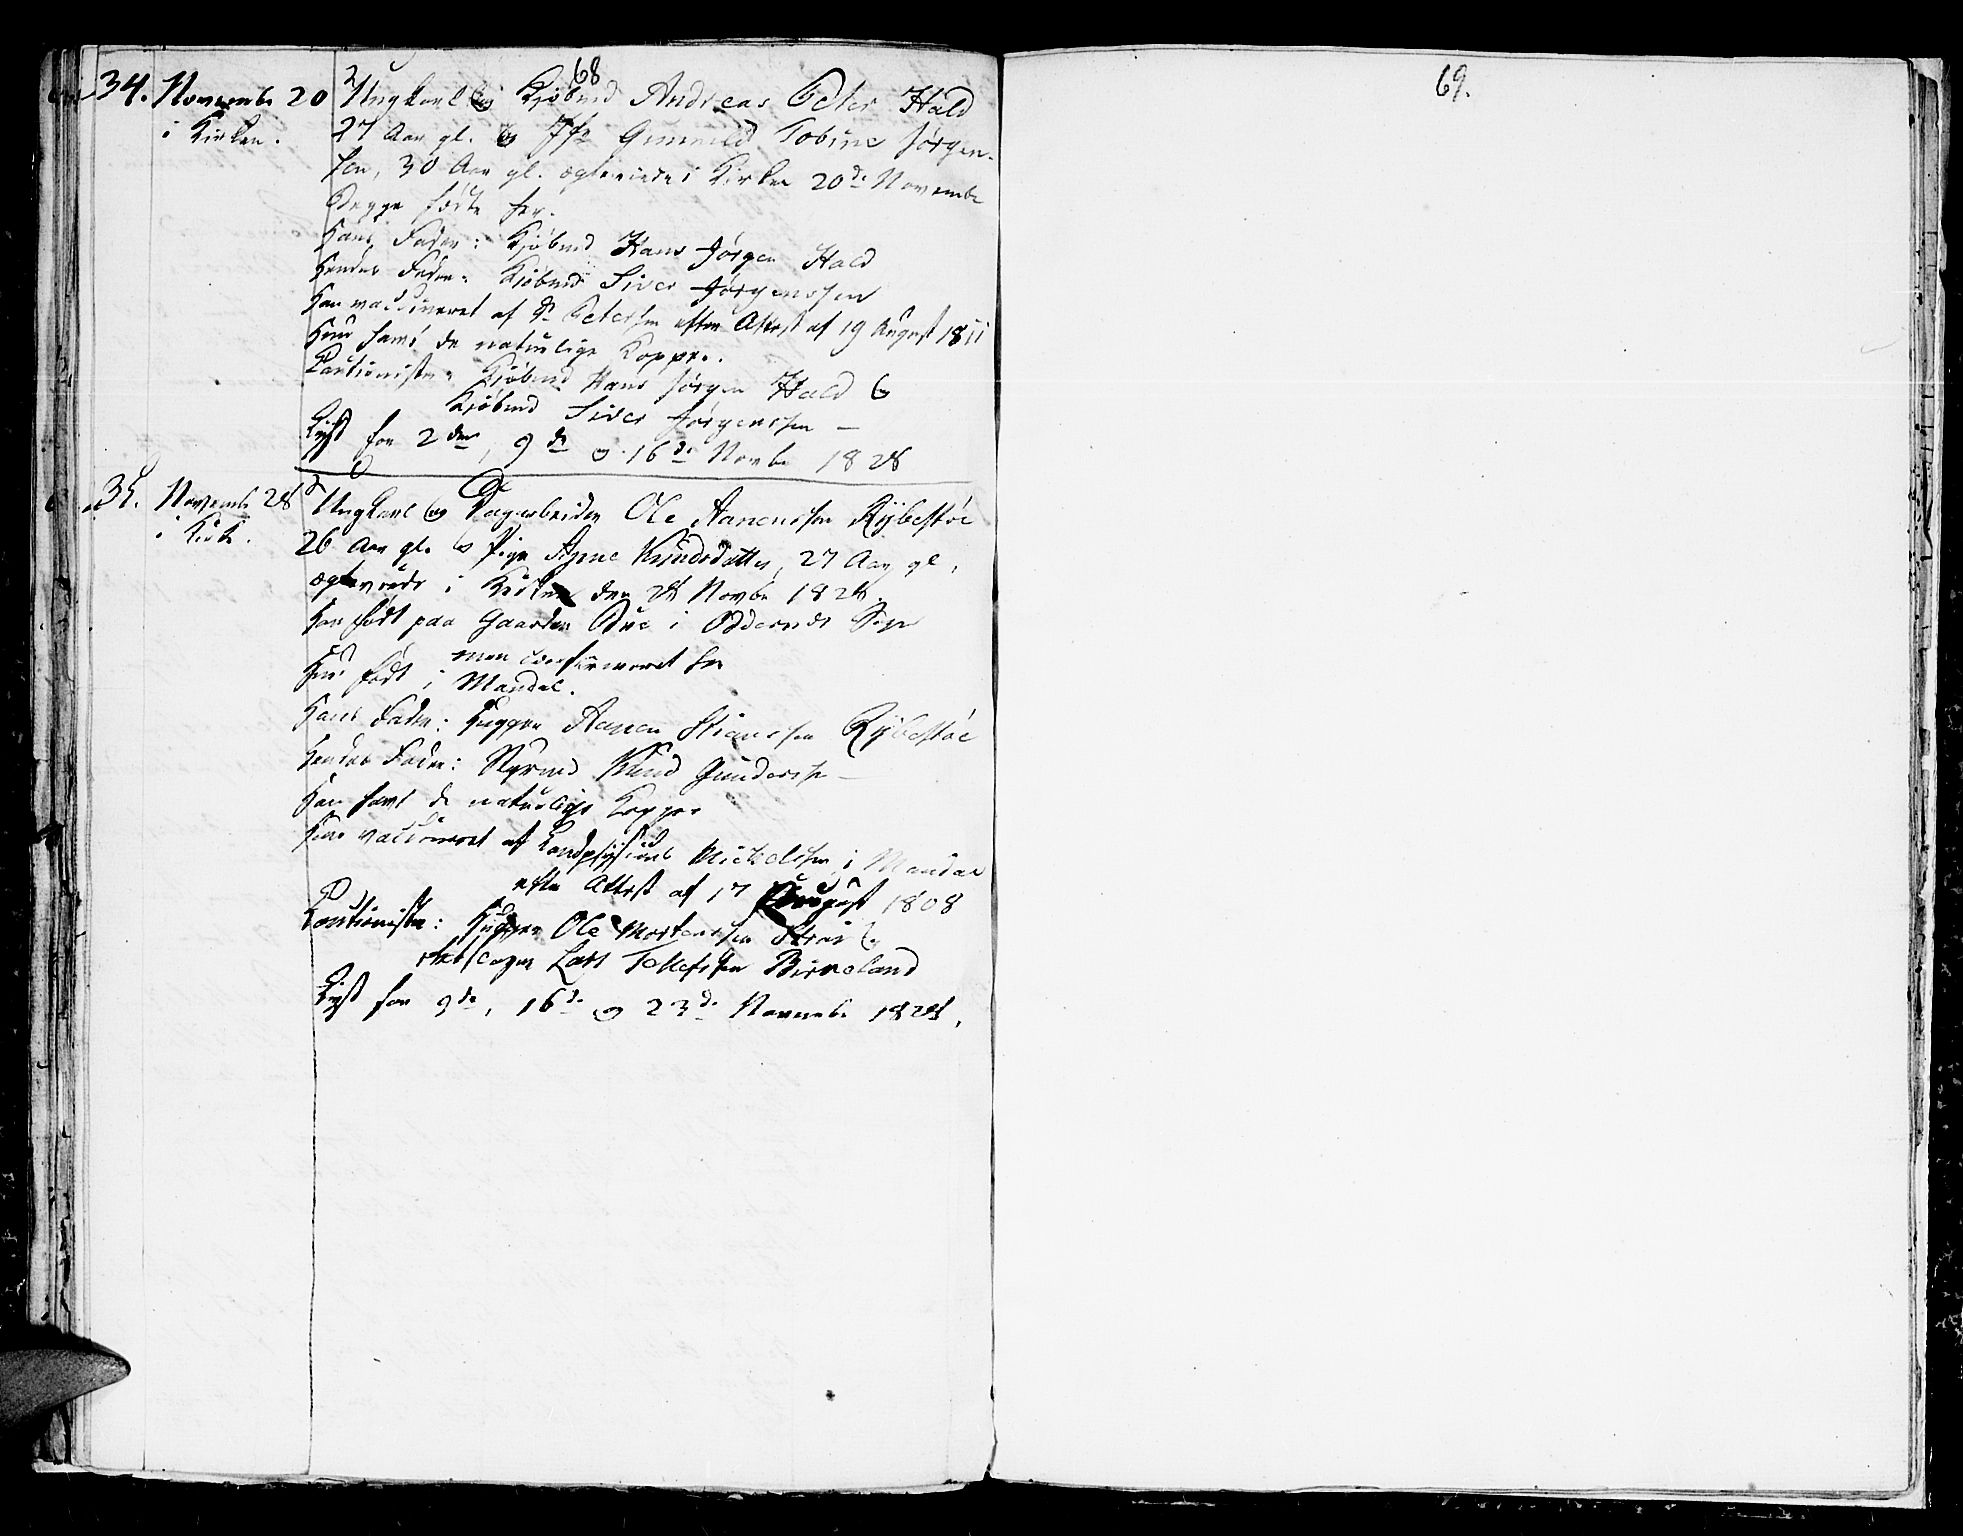 68
34. Novembr 20 Ungkarl og Kjøbmd Andreas Peter Hald
i Kirken. 27 Aar gl. og Jfr Gunnild Tobine Jørgen-
sen, 30 Aar gl. ægteviede i Kirken 20de Novembr
Begge fødte her.
Hans Fader: Kjøbmd Hans Jørgen Hald
Hendes Fader: Kjøbmd Siver Jørgenssen
Han vaccineret af Dr Petersen efter Attest af 19 August 1811
Hun havt de naturlige Kopper.
Cautionister: Kjøbmd Hans Jørgen Hald og
Kjøbmd Siver Jørgenssen –
Lyst for 2den, 9de og 16de Novbr 1828
35. Novemb. 28 Ungkarl og Dagarbeider Ole Aanenssen Rÿbestøe
i Kirk. 26 Aar gl. og Pige Anne Knudsdatter, 27 Aar gl.
ægteviede i Kirken den 28 Novbr 1828.
Han født paa Gaarden Bue i Oddernes Sogn
men confirmeret her
Hun født i Mandal.
Hans Fader: Aanen Stianssen Rÿbestøe
Hendes Fader: Styrmd Knud Gunderss –
Han havt de naturlige Kopper
Hun vaccineret af Landphysicus Mickelssen i Mandal
efter Attest af 17 August 1808
Cautionister: Ole Mortenssen Strai og
Lars Tellefssen Birkeland
Lyst for 9de, 16de og 23de Novembr 1828.
69.